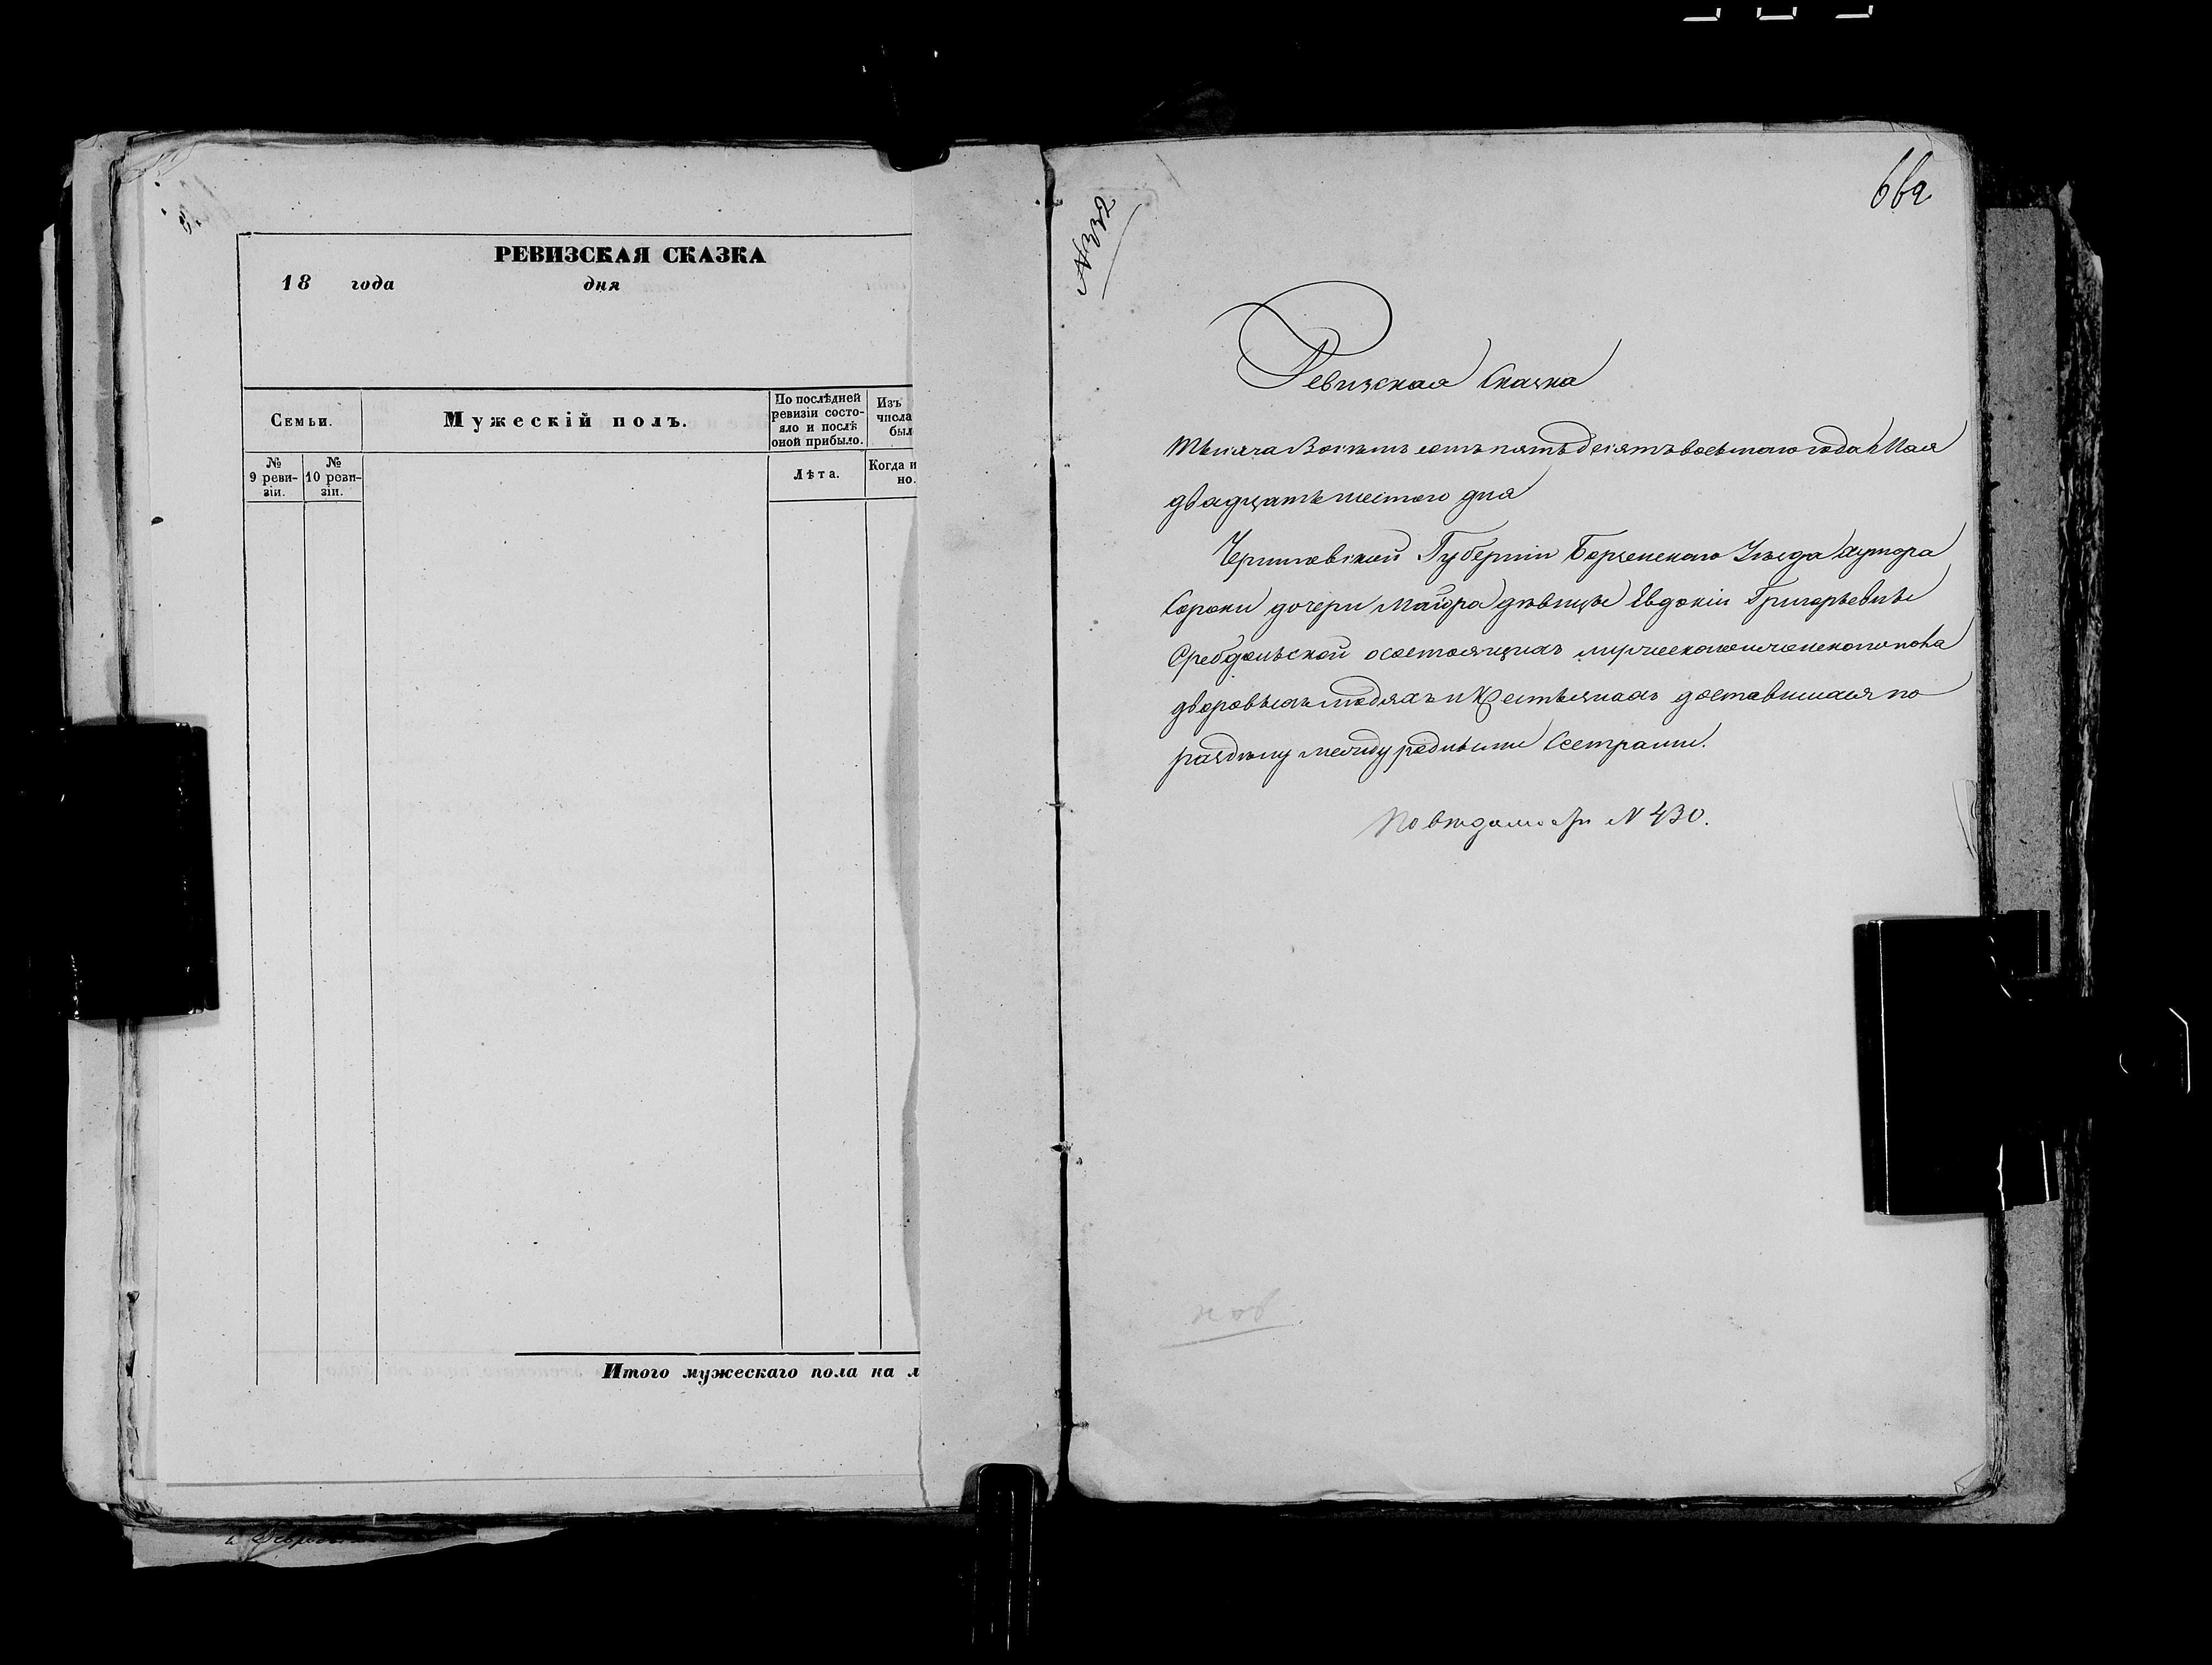 РЕВИЗСКАЯ СКАЗКА
18 года дня
Семьи.
Мужескій полъ.
По послѣдней
ревизіи состо-
яло и послѣ
оной прибыло.
Изъ
числа
был
№
9 реви-
зіи.
№
10 реви-
зіи.
Лѣта.
Когда и
но.
Итого мужескаго пола на л
№332
Ревизская Сказка
тысяча восемь сотъ пятьдесятъ восьмого года Мая
двадцать шестого дня
Черниговской Губерніи Борзенского Уѣзда хутора
Сороки дочери Маіора дѣвицы Евдокіи Григорьевны
Сребдольской о состоящихъ мужеского и женского пола
дворовыхъ людяхъ и Крестьянахъ доставшихся по
раздѣлу между родными Сестрами.
По вѣдомости N 430.
нов